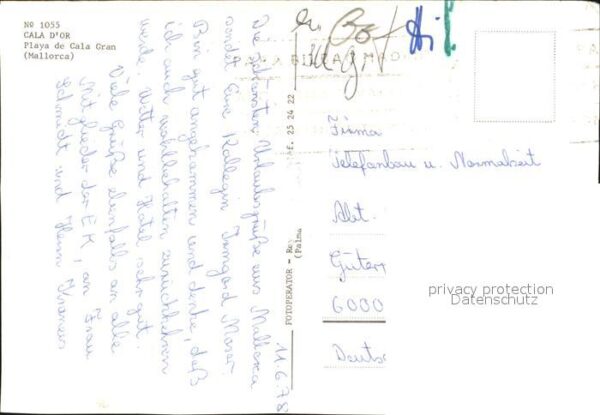 Nº 1055
CALA D'OR
Playa de Cala Gran
(Mallorca)
11.6.78
Die schönsten Urlaubsgrüße aus Mallorca
sendet Eure Kollegin Irmgard Moser.
Bin gut angekommen und denke, daß
ich auch wohlbehalten zurückkehren
werde. Wetter und Hotel sehr gut.
Viele Grüße ebenfalls an alle
Mitglieder der EK, an Frau
Schmidt und Herrn
FOTOPERATOR - Re
(Palma
f. 25 24 22
Firma
Telefonbau u. Normalzeit
Abt.
Güter
6000
Deuts
privacy protection
Datenschutz